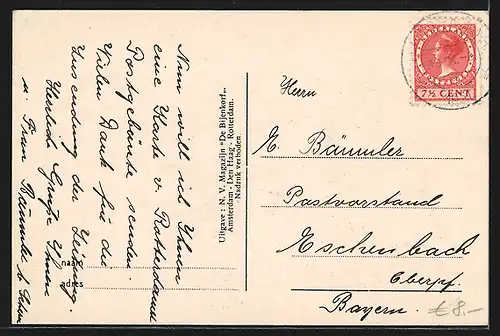 Nun will ich Ihnen
eine Karte v. Rotterdam
Postgebäude senden.
Vielen Dank für die
Zusendung der Zeitung.
Herzliche Grüße Ihnen
u. Frau Bäumler
naam
adres
Uitgave: N. V. Magazijn "De Bijenkorf"
Amsterdam - Den Haag - Rotterdam.
Nadruk verboden.
NEDERLAND
POSTZEGEL
7½ CENT
Herrn
E. Bäumler
Postvorstand
Eschenbach
Oberpf.
Bayern.
€ 8,-